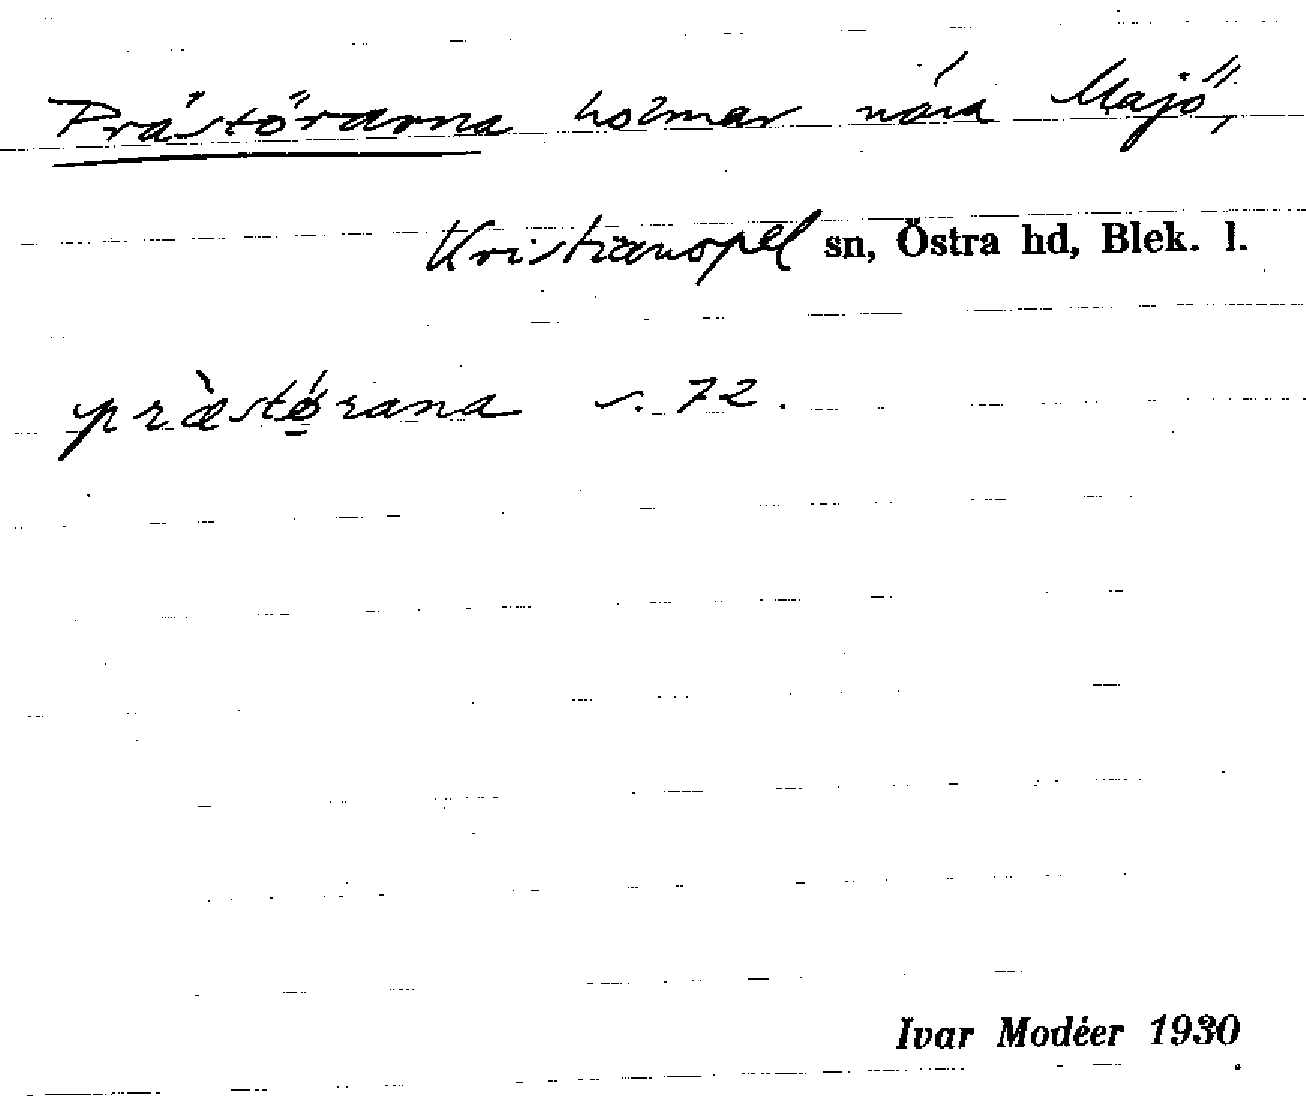 Prästörarna holmar nära Majö,
Kristianopel sn, Östra hd, Blek. l.
præ̀stǿrana s. 72.
Ivar Modéer 1930